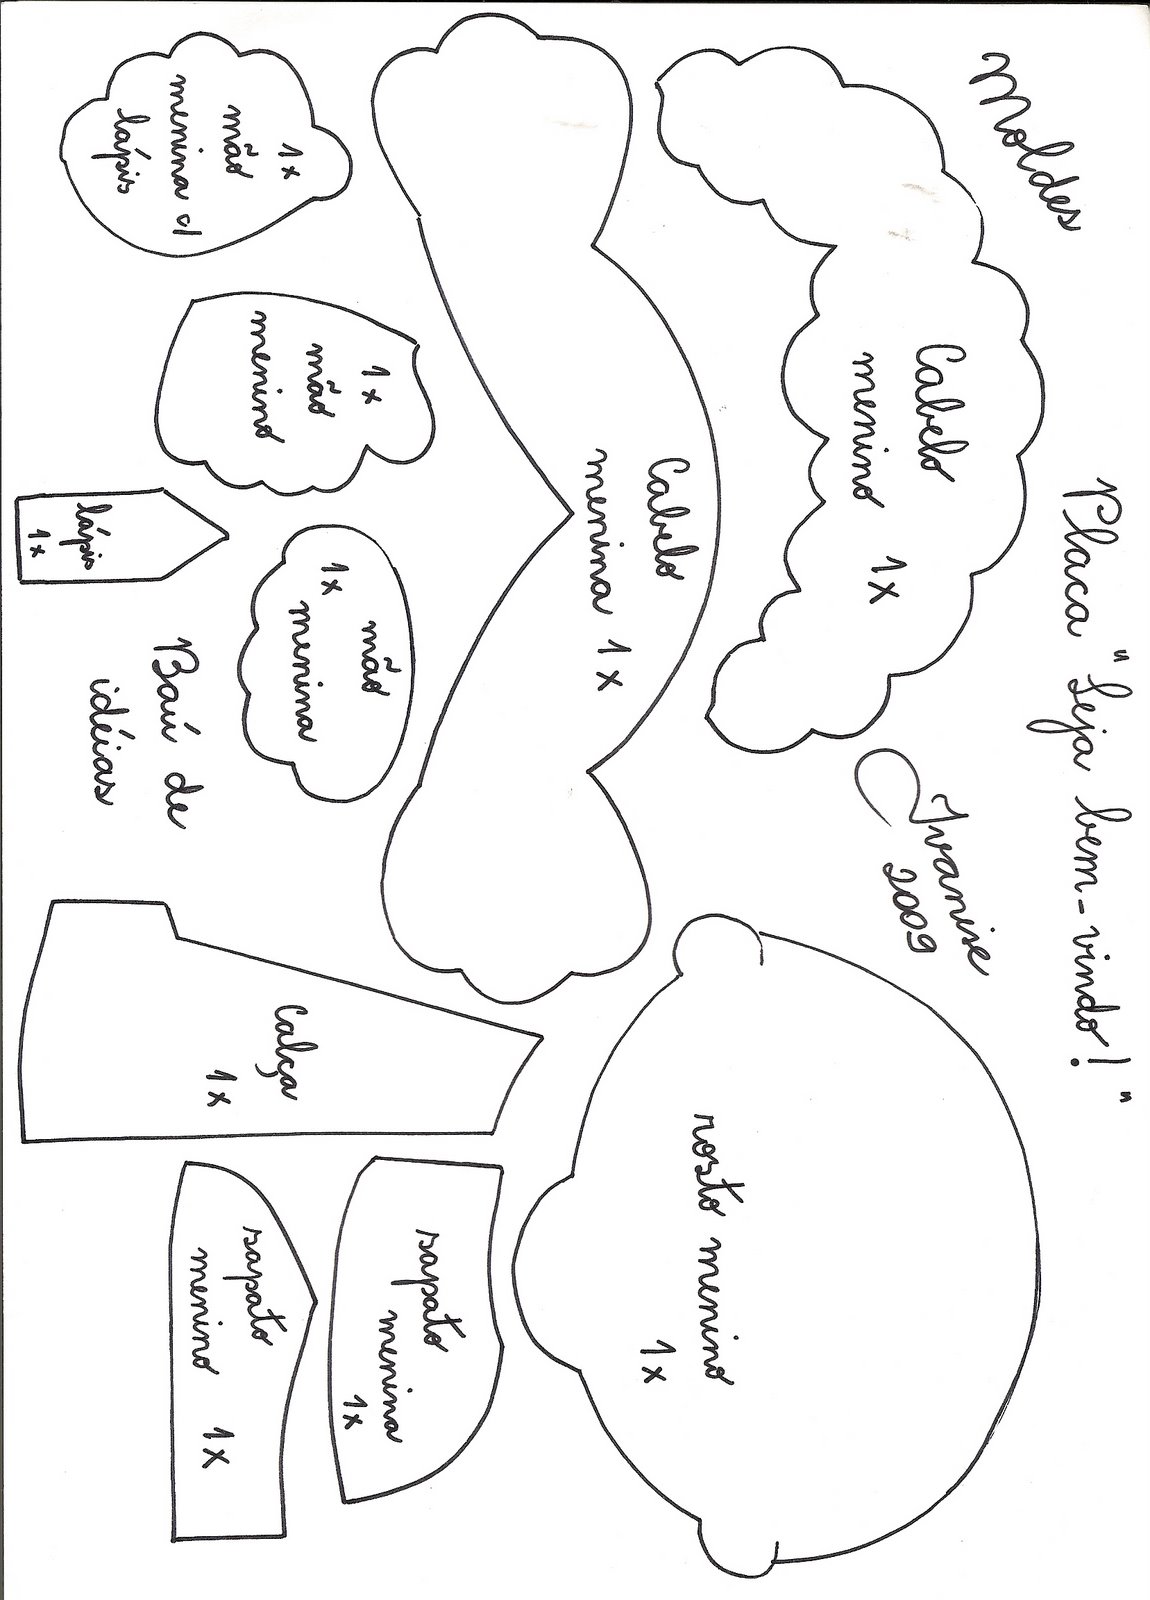 Moldes
Placa "Seja bem-vindo!"
Cabelo
menino 1x
Ivanise
2009
Cabelo
menina 1x
rosto menino
1x
1x
mão
menina c/
lápis
1x
mão
menino
lápis
1x
mão
menina
1x
Baú de
idéias
Calça
1x
sapato
menina
1x
sapato
menino 1x